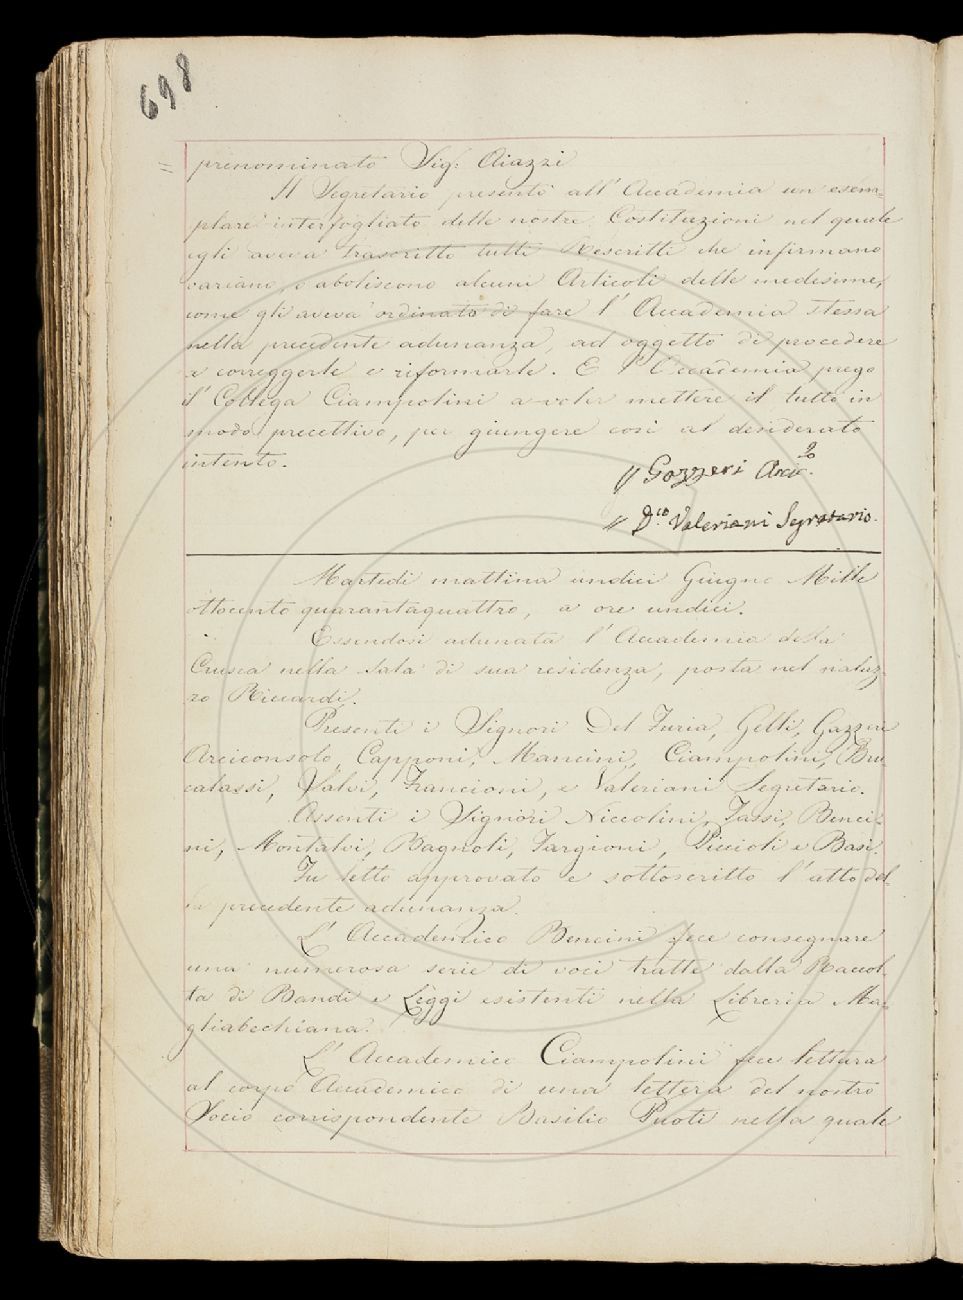 698
= prenominato Sig: Aiazzi
Il Segretario presentò all' Accademia un esem=
plare interfogliato delle nostre Costituzioni nel quale
egli aveva trascritto tutti i Rescritti che infirmano
variano, o aboliscono alcuni Articoli delle medesime,
come gli aveva ordinato di fare l' Accademia stessa
nella precedente adunanza, ad oggetto di procedere
a correggerle e riformarle. E l' Accademia pregò
il Collega Ciampolini a voler mettere il tutto in
modo precettivo, per giungere così al desiderato
intento.
// Gazzeri Arcic.lo
// D.co Valeriani Segretario.
Martedì mattina undici Giugno Mille
ottocento quarantaquattro, a ore undici.
Essendosi adunata l' Accademia della
Crusca nella Sala di sua residenza, posta nel palaz-
zo Riccardi.
Presenti i Signori Del Furia, Gelli, Gazzeri
Arciconsolo, Capponi, Mancini, Ciampolini, Bru
calassi, Salvi, Francioni, e Valeriani Segretario.
Assenti i Signori Niccolini, Tassi, Benci=
ni, Montalvi, Bagnoli, Targioni, Piccioli e Basi.
Fu letto approvato e sottoscritto l' atto del-
la precedente adunanza.
L' Accademico Bencini fece consegnare
una numerosa serie di voci tratte dalla Raccol-
ta di Bandi e Leggi esistenti nella Libreria Ma-
gliabechiana.
L' Accademico Ciampolini fece lettura
al corpo Accademico di una lettera del nostro
Socio corrispondente Basilio Puoti nella quale